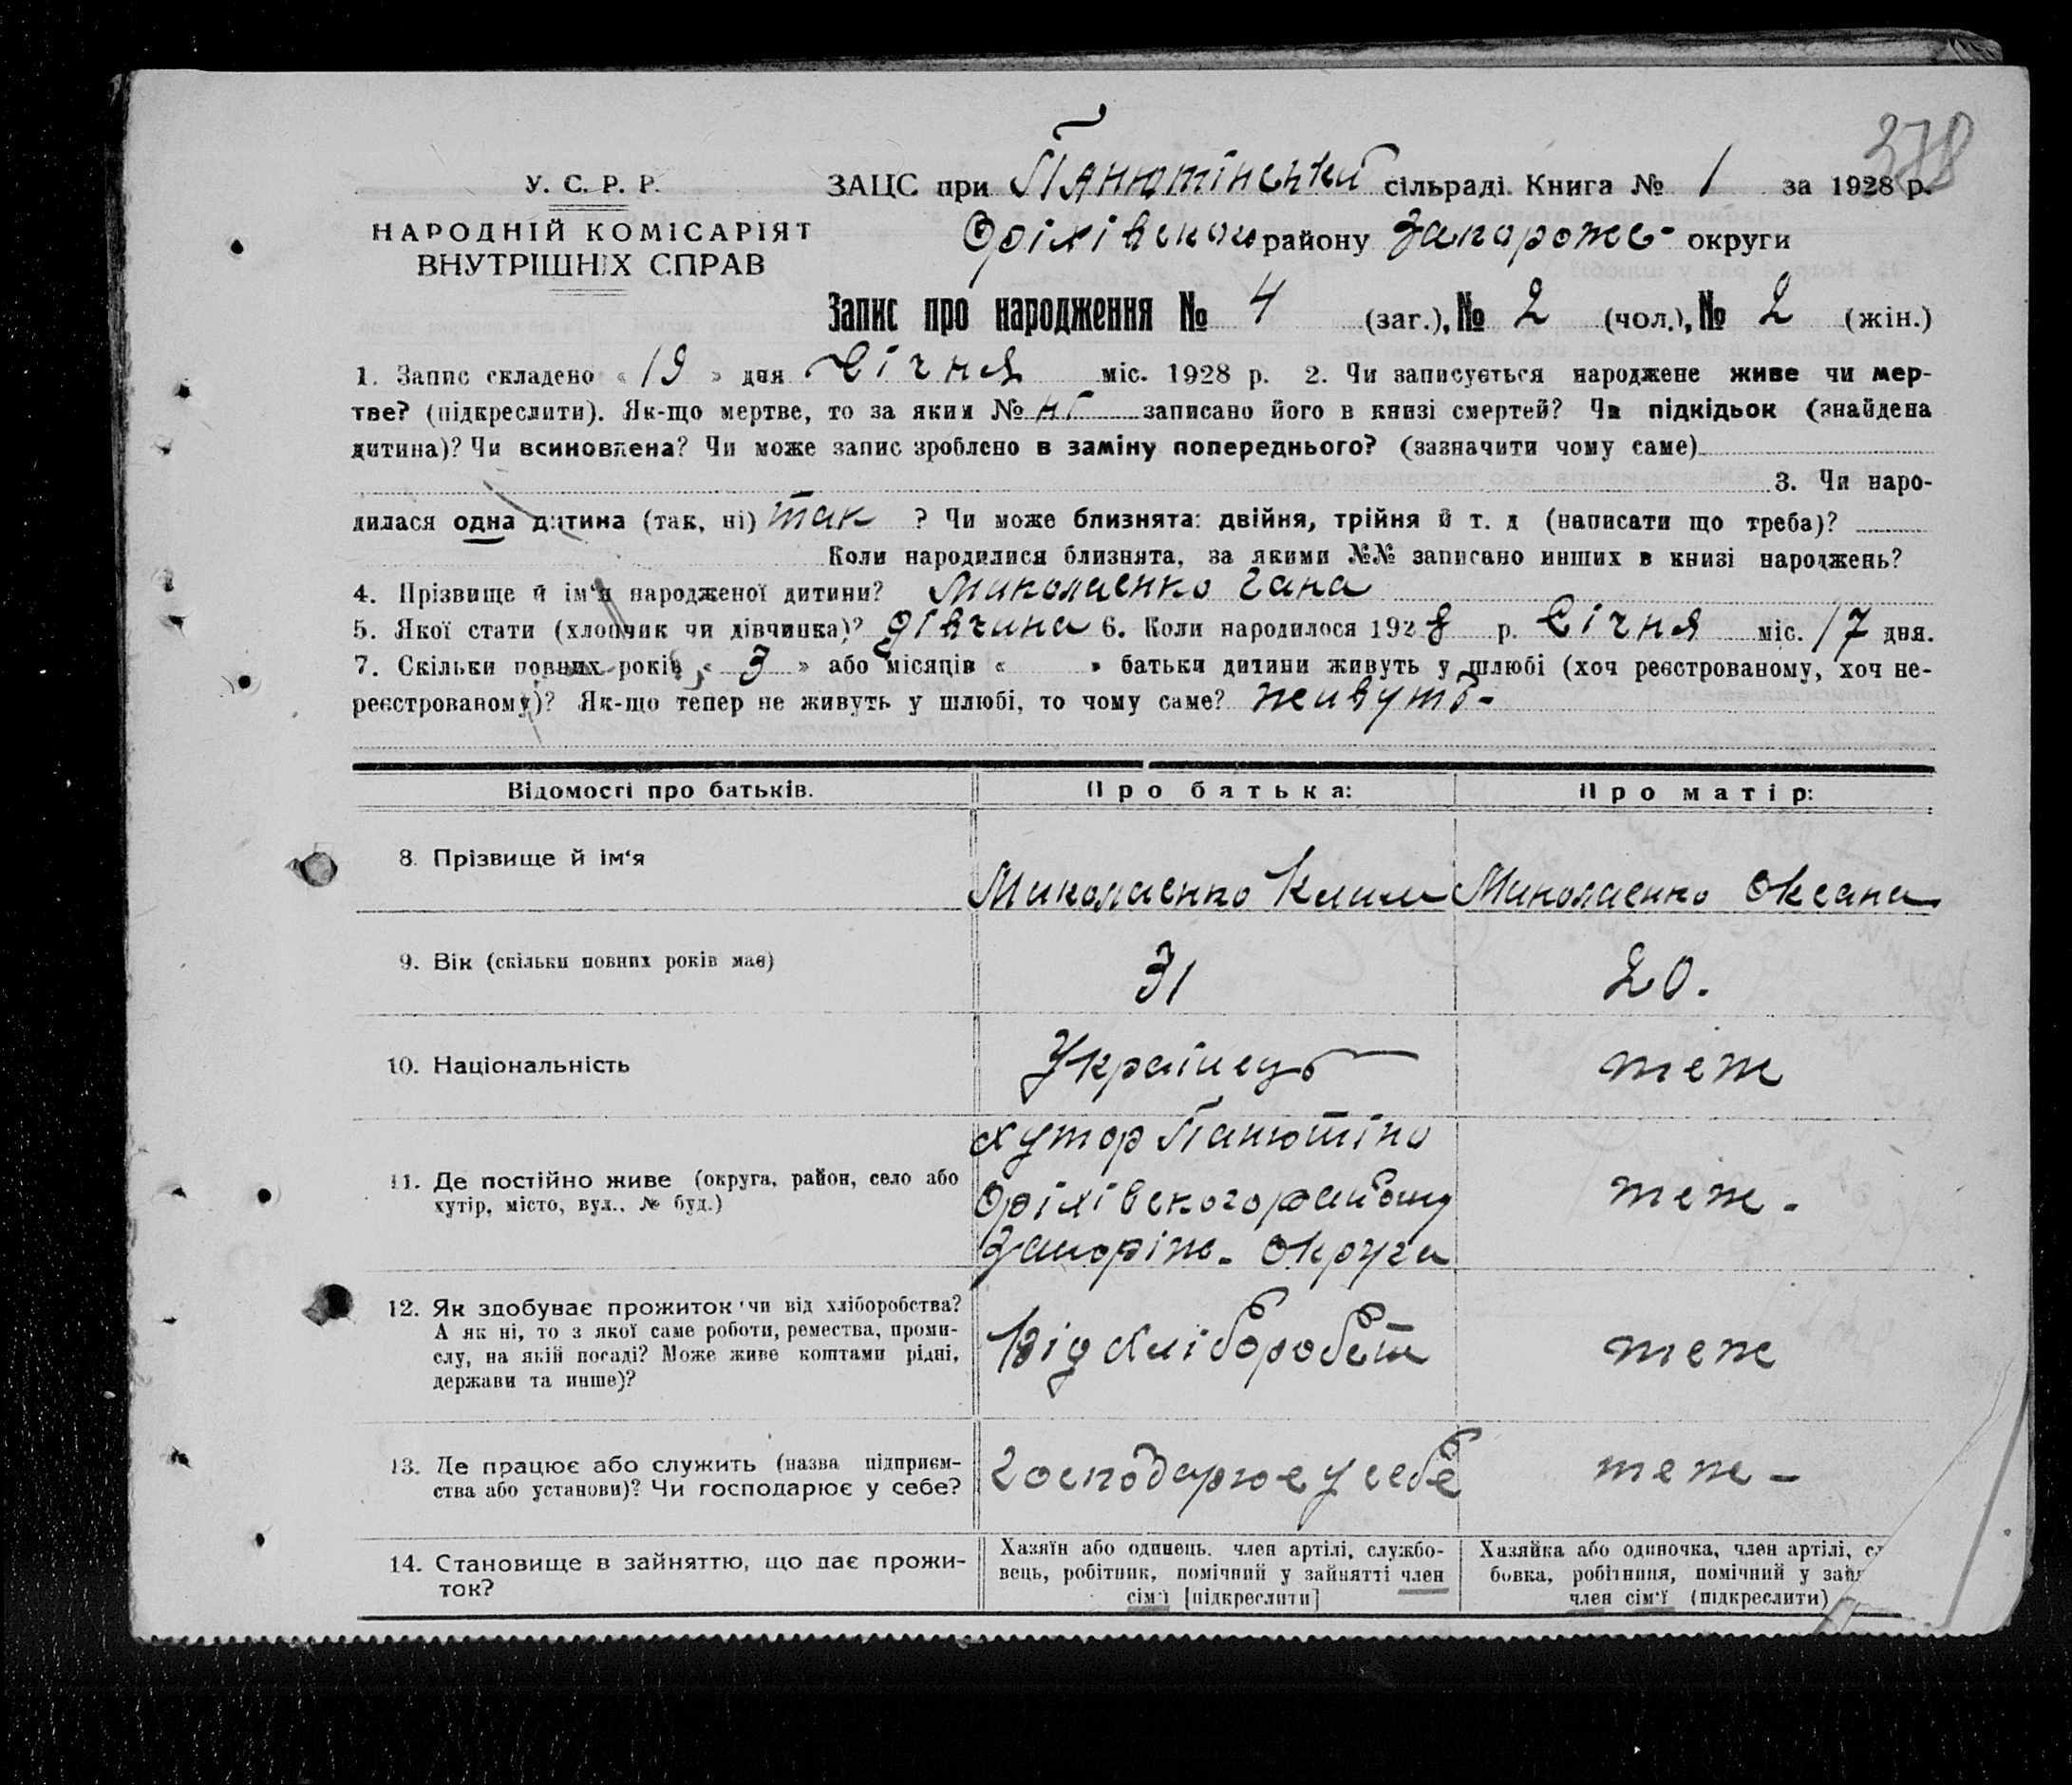 378
У. С. Р. Р.
НАРОДНІЙ КОМІСАРІЯТ
ВНУТРІШНІХ СПРАВ
ЗАЦС при Панютінський сільраді. Книга № 1 за 1928 р.
Оріхівском району Запорожс- округи
Запис про народження № 4 (заг.), № 2 (чол.), № 2 (жін.)
1. Запис складено « 19 » дня Січня міс. 1928 р. 2. Чи записується народжене живе чи мер-
тве? (підкреслити). Як-що мертве, то за яким № записано його в книзі смертей? Чи підкідьок (знайдена
дитина)? Чи всиновлена? Чи може запис зроблено в заміну попереднього? (зазначити чому саме)
3. Чи наро-
дилася одна дитина (так, ні) так ? Чи може близнята: двійня, трійня й т. д (написати що треба)?
Коли народилися близнята, за якими №№ записано инших в книзі народжень?
4. Прізвище й ім'я народженої дитини? Миколаенко Гана
5. Якої стати (хлопчик чи дівчинка)? дівчина 6. Коли народилося 1928 р. Січня міс. 17 дня.
7. Скільки повних років « 3 » або місяців « » батьки дитини живуть у шлюбі (хоч реєстрованому, хоч не-
реєстрованому)? Як-що тепер не живуть у шлюбі, то чому саме? живуть-
Відомості про батьків. Про батька: Про матір:
8. Прізвище й ім'я Миколаенко Клим Миколаенко Оксана
9. Вік (скільки повних років має) 31 20.
10. Національність Українець теж
11. Де постійно живе (округа, район, село або
хутір, місто, вул., № буд.)
хутор Панютіно
Оріхівского району
Запоріж. Округи
теж-
12. Як здобуває прожиток чи від хліборобства?
А як ні, то з якої саме роботи, ремества, проми-
слу, на якій посаді? Може живе коштами рідні,
держави та инше)?
Від хліборобст
теж
13. Де працює або служить (назва підприєм-
ства або установи)? Чи господарює у себе?
Господарює у себе
теж-
14. Становище в зайняттю, що дає прожи-
ток?
Хазяїн або одинець, член артілі, службо-
вець, робітник, помічний у зайнятті член
сім'ї [підкреслити]
Хазяйка або одиночка, член артілі,
бовка, робітниця, помічний у зай
член сім'ї (підкреслити)